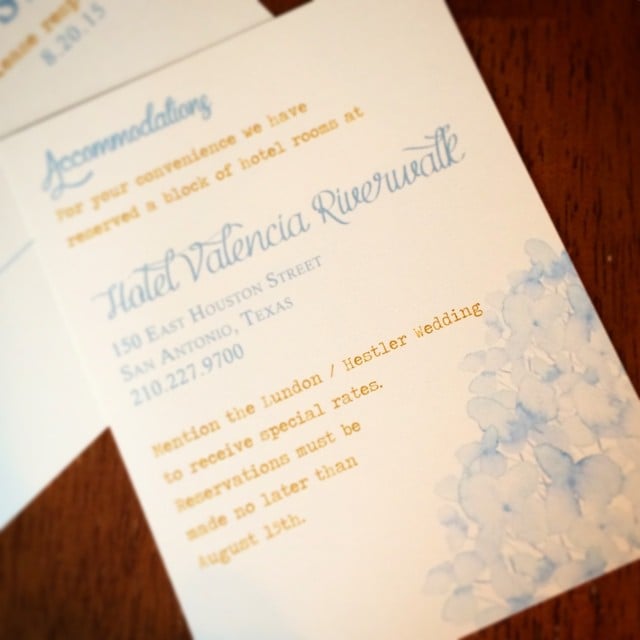 8.20.15
Accommodations
For your convenience we have
reserved a block of hotel rooms at
Hotel Valencia Riverwalk
150 East Houston Street
San Antonio, Texas
210.227.9700
Mention the Lundon / Hestler Wedding
to receive special rates.
Reservations must be
made no later than
August 15th.